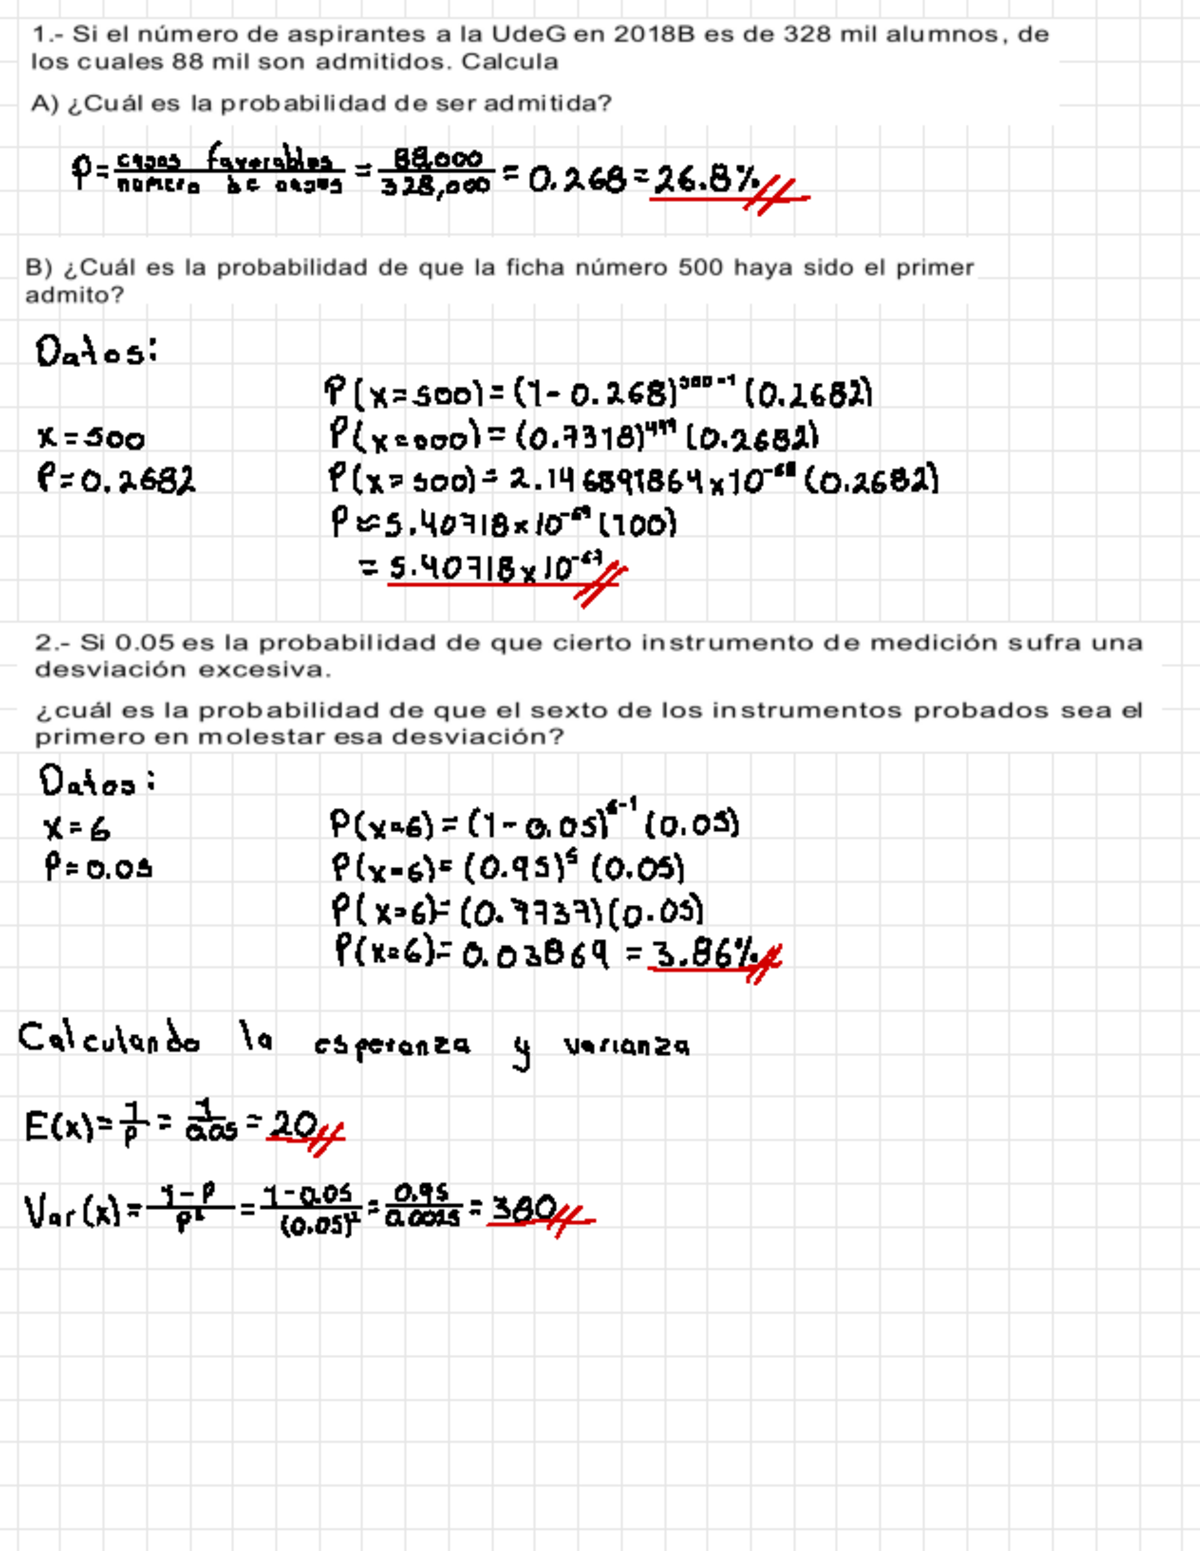 1.- Si el número de aspirantes a la UdeG en 2018B es de 328 mil alumnos, de
los cuales 88 mil son admitidos. Calcula
A) ¿Cuál es la probabilidad de ser admitida?
P = casos favorables / numero de casos = 88,000 / 328,000 = 0.268 = 26.8%
B) ¿Cuál es la probabilidad de que la ficha número 500 haya sido el primer
admito?
Datos:
P(x=500) = (1-0.268)^500-1 (0.2682)
x=500
P(x=500) = (0.7318)^499 (0.2682)
P=0.2682
P(x=500) = 2.146891864x10^-68 (0.2682)
P≈5.40718x10^-69 (100)
= 5.40718x10^-67
2.- Si 0.05 es la probabilidad de que cierto instrumento de medición sufra una
desviación excesiva.
¿cuál es la probabilidad de que el sexto de los instrumentos probados sea el
primero en molestar esa desviación?
Datos:
x=6
P(x=6) = (1-0.05)^6-1 (0.05)
P=0.05
P(x=6) = (0.95)^5 (0.05)
P(x=6) = (0.7737)(0.05)
P(x=6) = 0.03869 = 3.86%
Calculando la esperanza y varianza
E(x) = 1/P = 1/0.05 = 20
Var(x) = 1-P / P² = 1-0.05 / (0.05)² = 0.95 / 0.0025 = 380